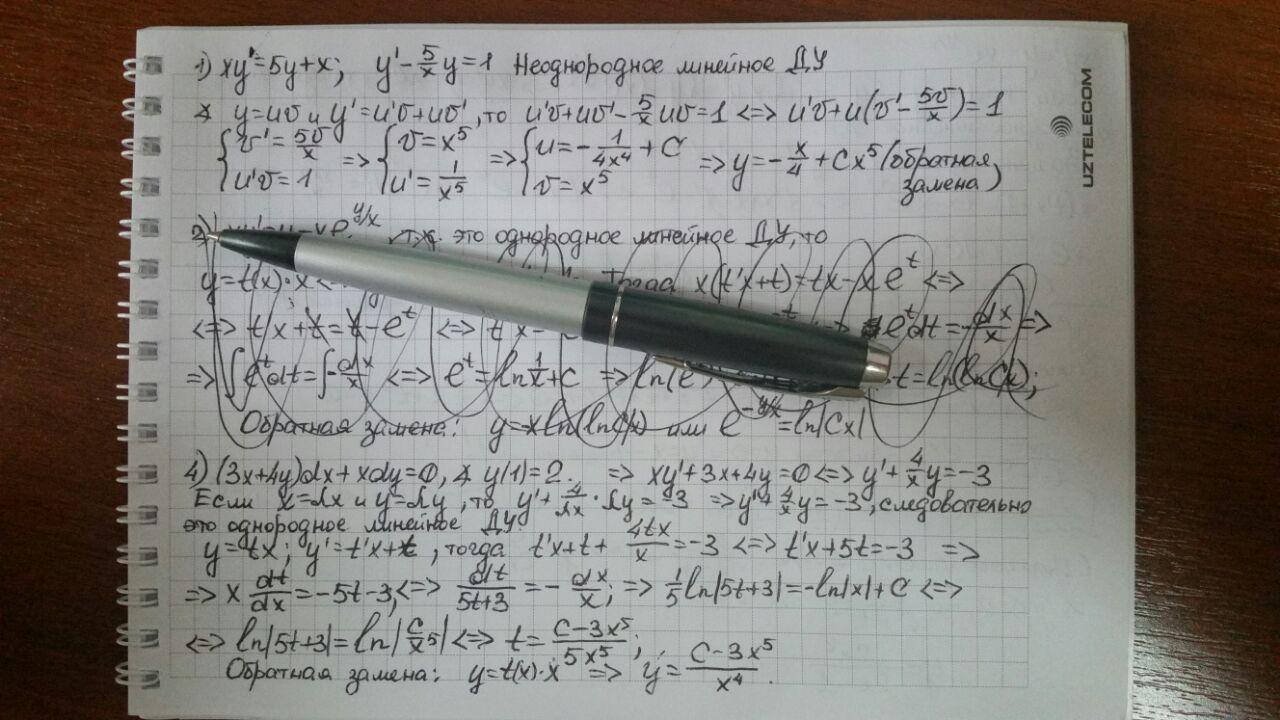 1) xy'=5y+x; y'-5/x y=1 Неоднородное линейное ДУ
y=uv и y'=u'v+uv', то u'v+uv'-5/x uv=1 <=> u'v+u(v'-5v/x)=1
{v'=5v/x u'v=1 => {v=x^5 u'=1/x^5 => {u=-1/4x^4+C v=x^5 => y=-x/4+Cx^5 (обратная
замена)
UZTELECOM
2) y/x это однородное линейное ДУ, то
y=t(x)·x Тогда x(t'x+t)=tx-xe^t <=>
<=> t'x+t=t-e^t <=> t'x e^-t dt=-dx/x =>
=> ∫e^-t dt=∫-dx/x <=> e^-t=ln 1/x+C => ln(e t=ln(lnCx);
Обратная замена: y=-xln(lnCx) или e^-y/x=ln|Cx|
4) (3x+4y)dx+xdy=0, y(1)=2. => xy'+3x+4y=0 <=> y'+4/x y=-3
Если x=λx и y=λy, то y'+4/λx·λy=-3 => y'+4/x y=-3, следовательно
это однородное линейное ДУ.
y=tx; y'=t'x+t, тогда t'x+t+4tx/x=-3 <=> t'x+5t=-3 =>
=> x dt/dx=-5t-3; <=> dt/5t+3=-dx/x; => 1/5 ln|5t+3|=-ln|x|+C <=>
<=> ln|5t+3|=ln|C/x^5| <=> t=C-3x^5/5x^5;
Обратная замена: y=t(x)·x => y=C-3x^5/x^4.